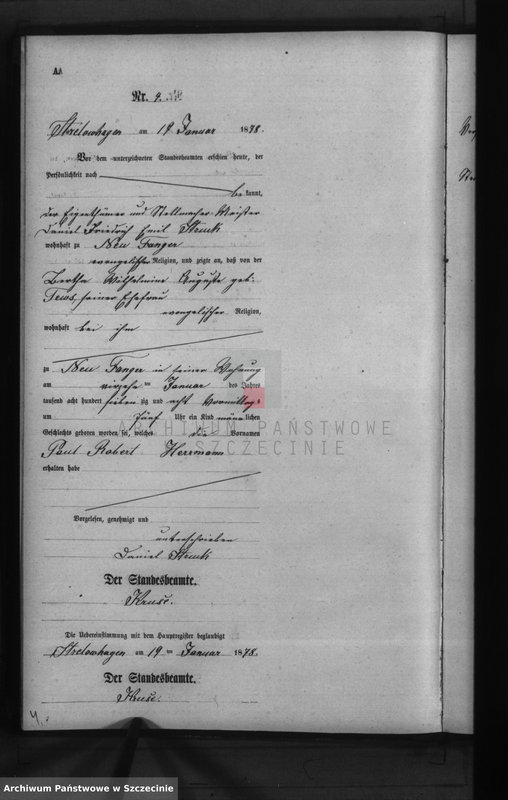 A
Nr. 9.
Strelowhagen am 19 Januar 1878.
Vor dem unterzeichneten Standesbeamten erschien heute, der
Persönlichkeit nach
bekannt,
der Eigenthümer und Stellmacher Meister
Daniel Friedrich Emil Struck
wohnhaft zu Neu Fanger
evangelischer Religion, und zeigte an, daß von der
Bertha Wilhelmine Auguste geb:
seiner Ehefrau
evangelischer Religion,
wohnhaft bei ihm
zu Neu Fanger in seiner Wohnung
am virzehn ten Januar des Jahres
tausend acht hundert sieben zig und acht Vormittags
um fünf Uhr ein Kind männlichen
Geschlechts geboren worden sei, welches die Vornamen
Paul Robert Herrmann
erhalten habe
Vorgelesen, genehmigt und
unterschrieben
Daniel Struck
Der Standesbeamte.
Kruse.
Die Uebereinstimmung mit dem Hauptregister beglaubigt
Strelowhagen am 19 ten Januar 1878.
Der Standesbeamte.
Kruse.
4.
ARCHIWUM PAŃSTWOWE
W SZCZECINIE
Archiwum Państwowe w Szczecinie